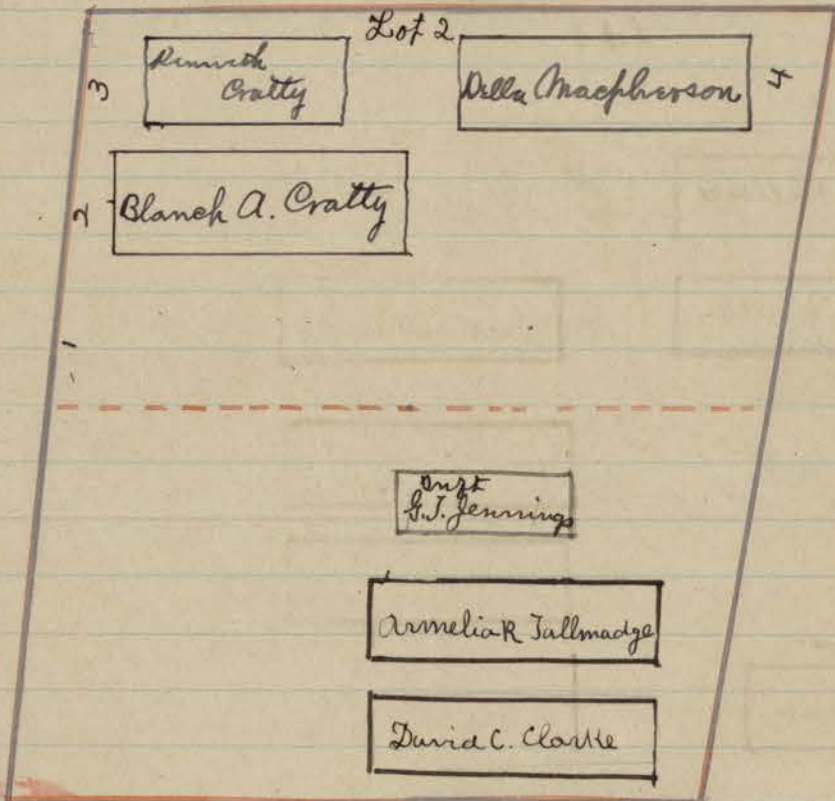 Lot 2
3
Kenneth
Cratty
Della Macpherson
4
2
Blanch A. Cratty
1
Inft
G.J. Jennings
Armelia R Tallmadge
David C. Clarke